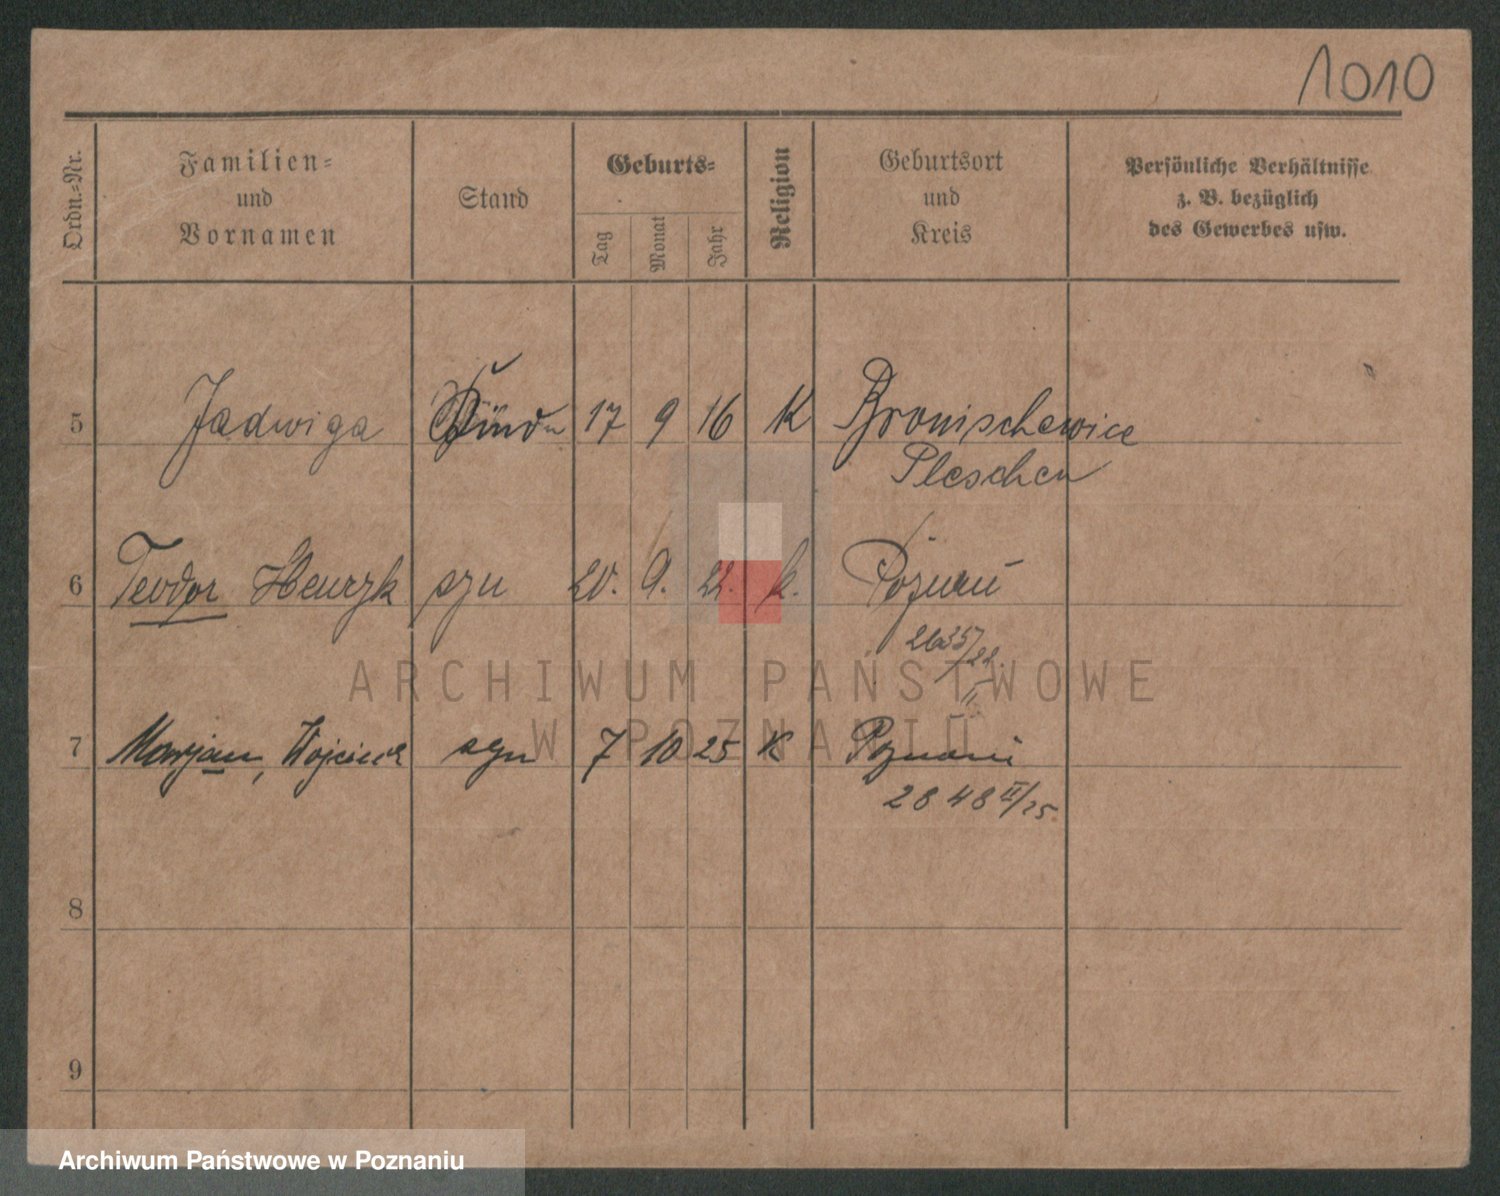 1010
Ordn.-Nr.
Familien-
und
Vornamen
Stand
Geburts-
Tag
Monat
Jahr
Religion
Geburtsort
und
Kreis
Persönliche Verhältnisse
z. B. bezüglich
des Gewerbes usw.
5 Jadwiga 17 9 16 K Bronischewice
Pleschen
6 Teodor Henryk syn 20. 9. 22. k. Poznań
2635/22
II
7 Marjan, Wojciech syn 7 10 25 K Poznań
2848 II/25.
8
9
ARCHIWUM PAŃSTWOWE
W POZNANIU
Archiwum Państwowe w Poznaniu